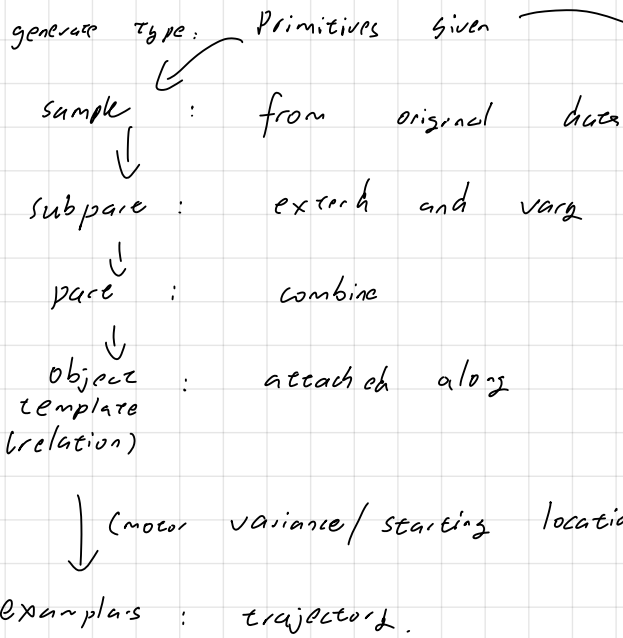 generate type: Primitives given
sample : from original data
subpart : extend and vary
part : combine
object : attached along
template
(relation)
(motor variance/ starting locatio
examplars : trajectory.